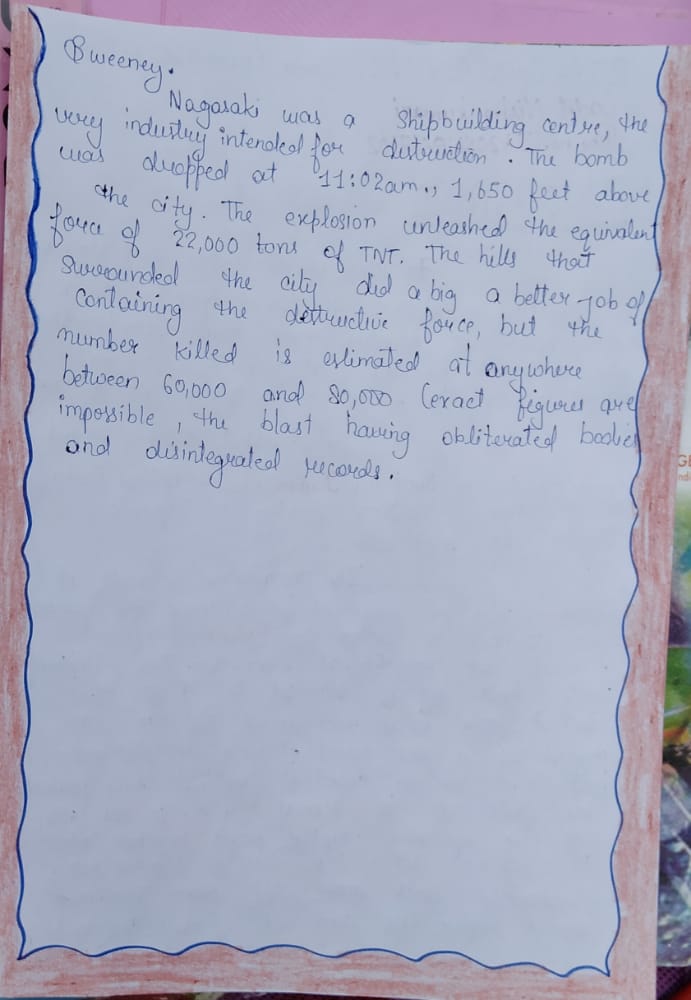 Sweeney.
Nagasaki was a Shipbuilding centre, the
very industry intended for destruction. The bomb
was dropped at 11:02am., 1,650 feet above
the city. The explosion unleashed the equivalent
force of 22,000 tons of TNT. The hills that
surrounded the city did a big a better job of
containing the destructive force, but the
number killed is estimated at anywhere
between 60,000 and 80,000 (exact figures are
impossible, the blast having obliterated bodies
and disintegrated records.